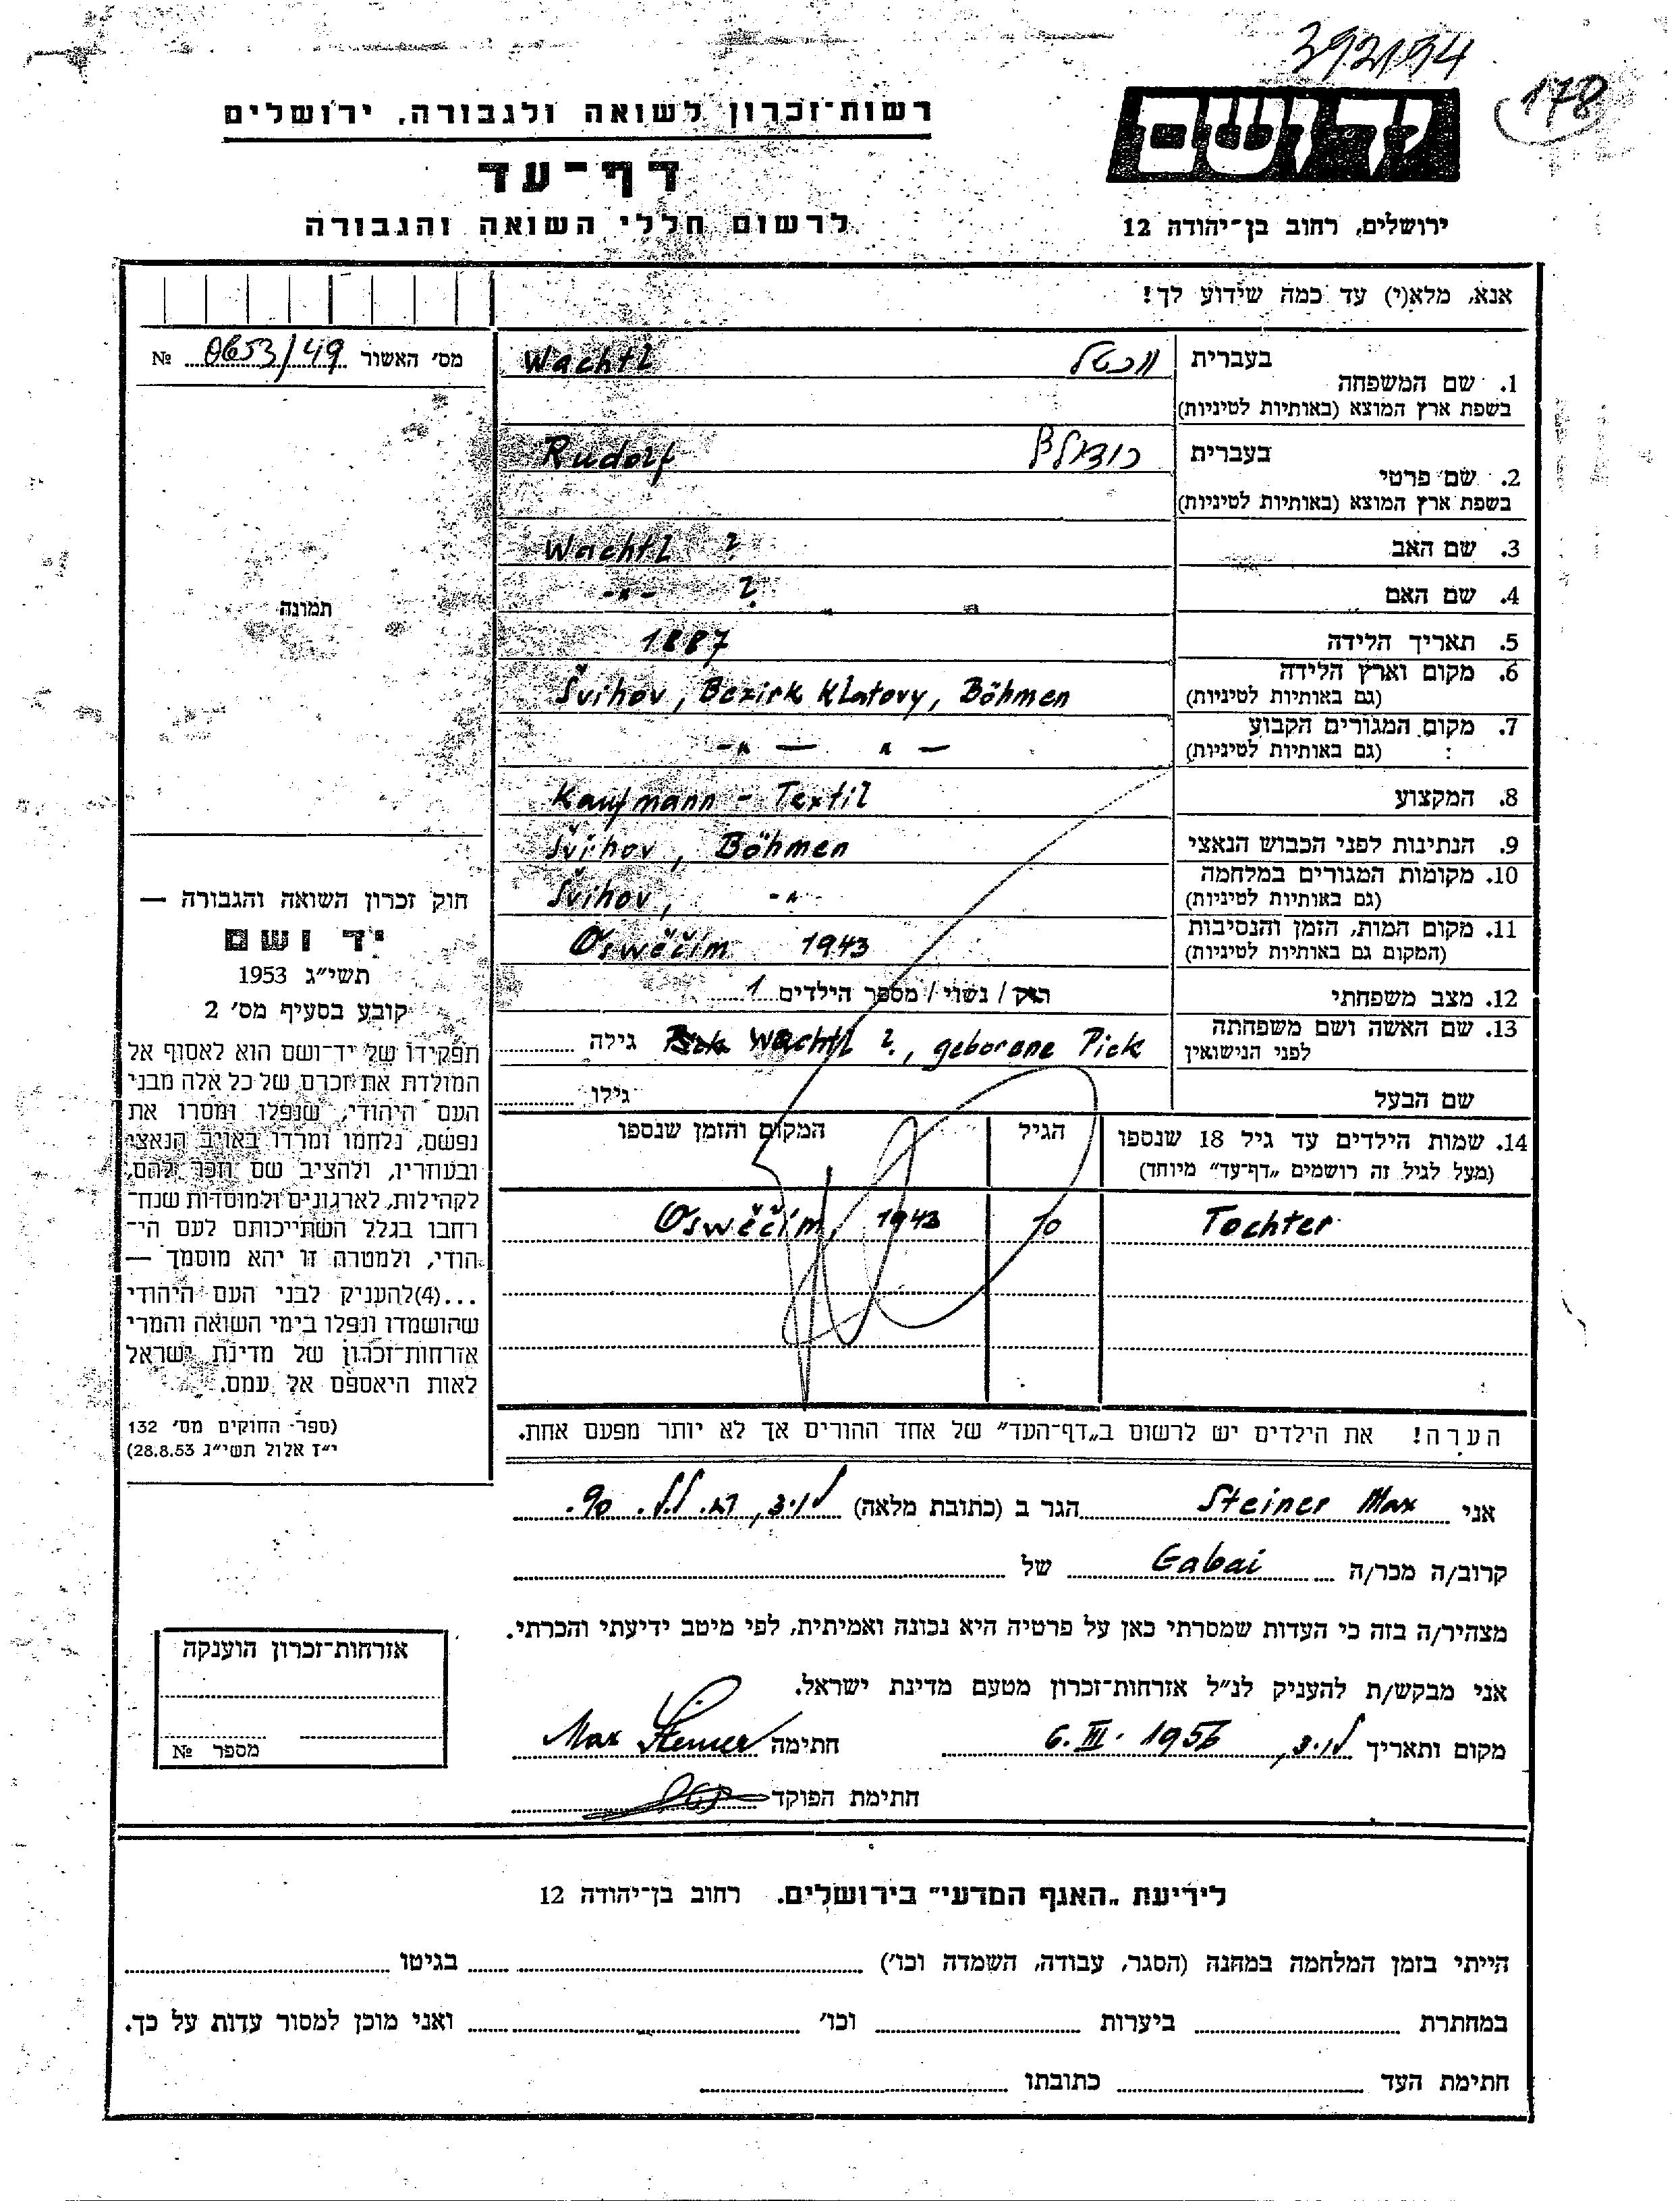 178
רשות־זכרון לשואה ולגבורה, ירושלים
דף־עד
לרשום חללי השואה והגבורה
יד ושם
ירושלים, רחוב בן־יהודה 12
אנא, מלא(י) עד כמה שידוע לך!
מס׳ האשור № 0653/49
תמונה
חוק זכרון השואה והגבורה —
יד ושם
תשי״ג 1953
קובע בסעיף מס׳ 2
תפקידו של יד־ושם הוא לאסוף אל
המולדת את זכרם של כל אלה מבני
העם היהודי, שנפלו ומסרו את
נפשם, נלחמו ומרדו באויב הנאצי
ובעוזריו, ולהציב שם וזכר להם,
לקהילות, לארגונים ולמוסדות שנח־
רבו בגלל השתייכותם לעם הי־
הודי, ולמטרה זו יהא מוסמך —
...(4)להעניק לבני העם היהודי
שהושמדו ונפלו בימי השואה והמרי
אזרחות־זכרון של מדינת ישראל
לאות היאספם אל עמם.
(ספר החוקים מס׳ 132
י״ז אלול תשי״ג 28.8.53)
1. שם המשפחה בעברית וכטל Wachtl
בשפת ארץ המוצא (באותיות לטיניות)
2. שם פרטי בעברית רודולף Rudolf
בשפת ארץ המוצא (באותיות לטיניות)
3. שם האב Wachtl ?
4. שם האם -"- ?
5. תאריך הלידה 1887
6. מקום וארץ הלידה Švihov, Bezirk Klatovy, Böhmen
(גם באותיות לטיניות)
7. מקום המגורים הקבוע -"- " -
(גם באותיות לטיניות)
8. המקצוע Kaufmann - Textil
9. הנתינות לפני הכבוש הנאצי Švihov, Böhmen
10. מקומות המגורים במלחמה Švihov, -"-
(גם באותיות לטיניות)
11. מקום המות, הזמן והנסיבות Oswěčim 1943
(המקום גם באותיות לטיניות)
12. מצב משפחתי רוק / נשוי / מספר הילדים 1
13. שם האשה ושם משפחתה Pick Wachtl ?, geborene Pick גילה
לפני הנישואין
שם הבעל גילו
14. שמות הילדים עד גיל 18 שנספו הגיל המקום והזמן שנספו
(מעל לגיל זה רושמים „דף־עד״ מיוחד)
Tochter 10 Oswěčim, 1943
הערה! את הילדים יש לרשום ב„דף־העד״ של אחד ההורים אך לא יותר מפעם אחת.
אני Steiner Max הגר ב (כתובת מלאה) 90.
קרוב/ה מכר/ה Gabai של
מצהיר/ה בזה כי העדות שמסרתי כאן על פרטיה היא נכונה ואמיתית, לפי מיטב ידיעתי והכרתי.
אני מבקש/ת להעניק לנ״ל אזרחות־זכרון מטעם מדינת ישראל.
מקום ותאריך 6. III. 1956 חתימה Max Steiner
חתימת הפוקד
אזרחות־זכרון הוענקה
מספר №
לידיעת „האגף המדעי״ בירושלים. רחוב בן־יהודה 12
הייתי בזמן המלחמה במחנה (הסגר, עבודה, השמדה וכו׳) בגיטו
במחתרת ביערות וכו׳ ואני מוכן למסור עדות על כך.
חתימת העד כתובתו